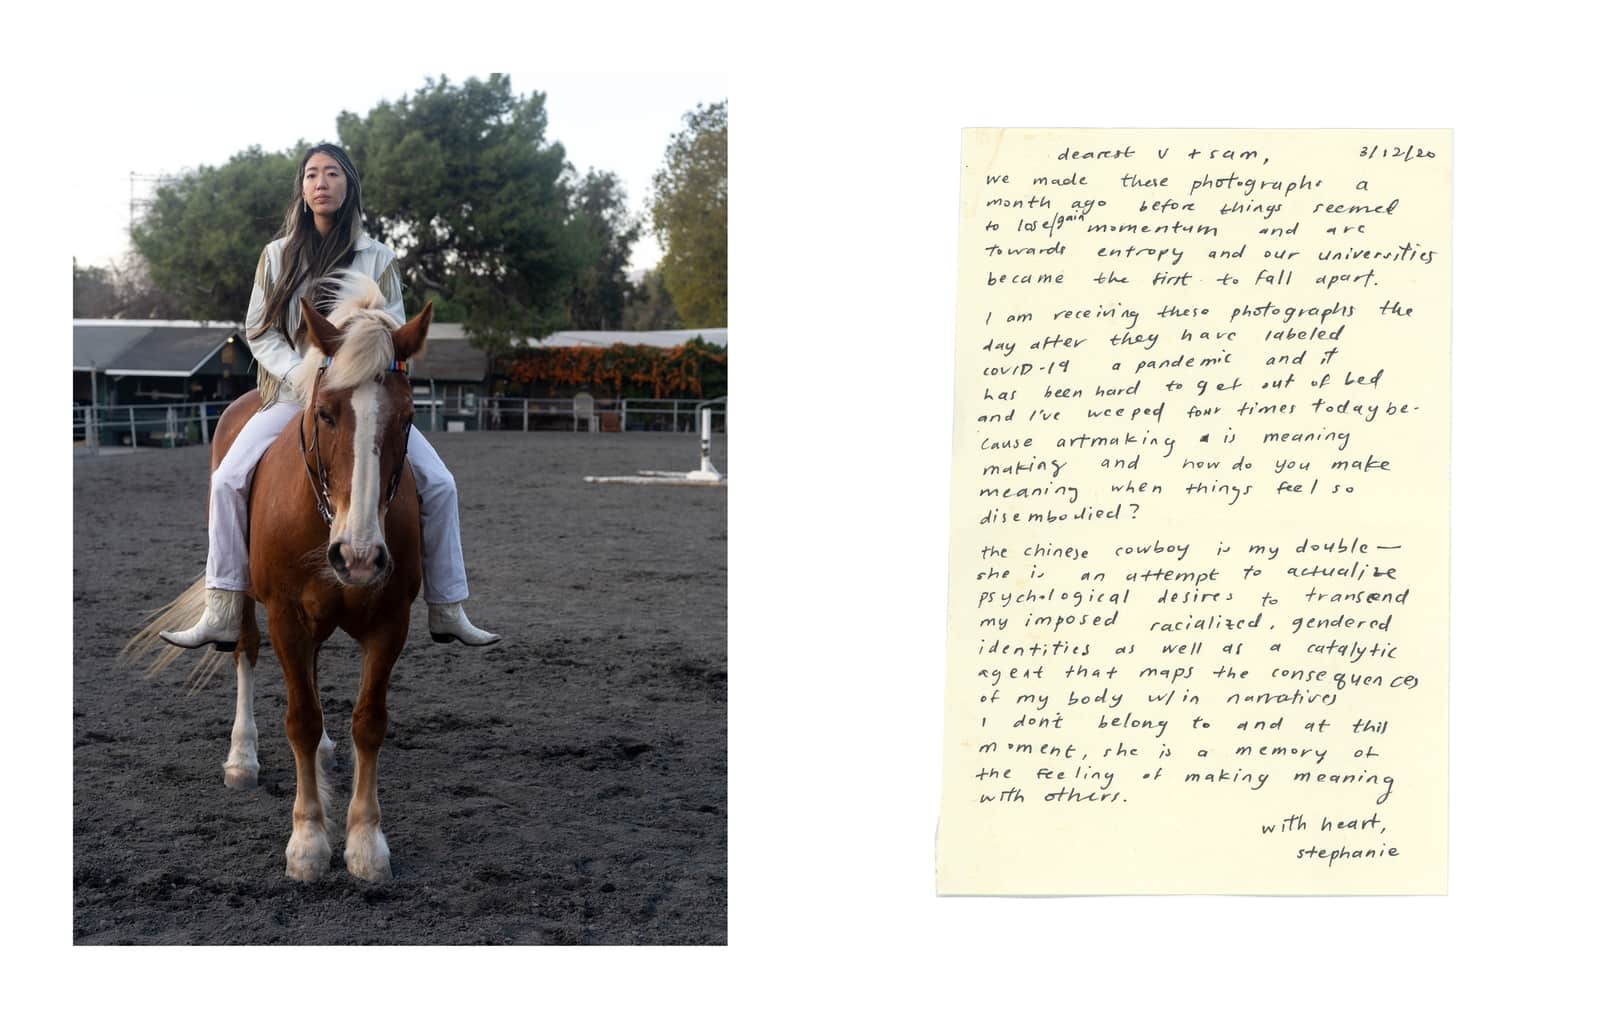 dearest v + sam, 3/12/20
we made these photographs a
month ago before things seemed
to lose/gain momentum and arc
towards entropy and our universities
became the first to fall apart.
I am receiving these photographs the
day after they have labeled
covID-19 a pandemic and it
has been hard to get out of bed
and I've weeped four times today be-
cause artmaking is meaning
making and how do you make
meaning when things feel so
disembodied?
the chinese cowboy is my double—
she is an attempt to actualize
psychological desires to transcend
my imposed racialized, gendered
identities as well as a catalytic
agent that maps the consequences
of my body w/in narratives
I don't belong to and at this
moment, she is a memory of
the feeling of making meaning
with others.
with heart,
stephanie